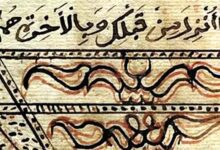 أنزل من قبلك وبالأخرة هم